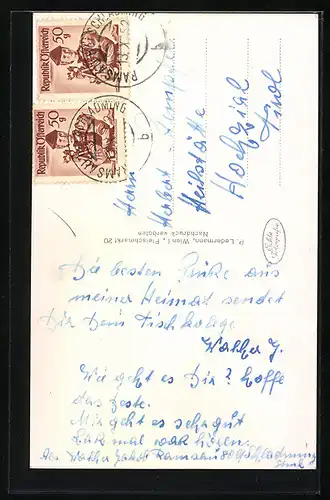 Republik Österreich
50 g
Republik Österreich
50 g
RAMSAU SCHLADMING
RAMSAU SCHLADMING
Herrn
Herbert
Heilstätte
Hochzirl
Tirol
P. Ledermann, Wien I, Fleischmarkt 20
Nachdruck verboten
Echte Photographie
Die besten aus
meiner Heimat sendet
Dir Dein Tischkolege
Walther J.
Wie geht es Dir? Hoffe
das beste.
Mir geht es sehr gut
Las mal was hören.
Walther Jakob Ramsau Schladming